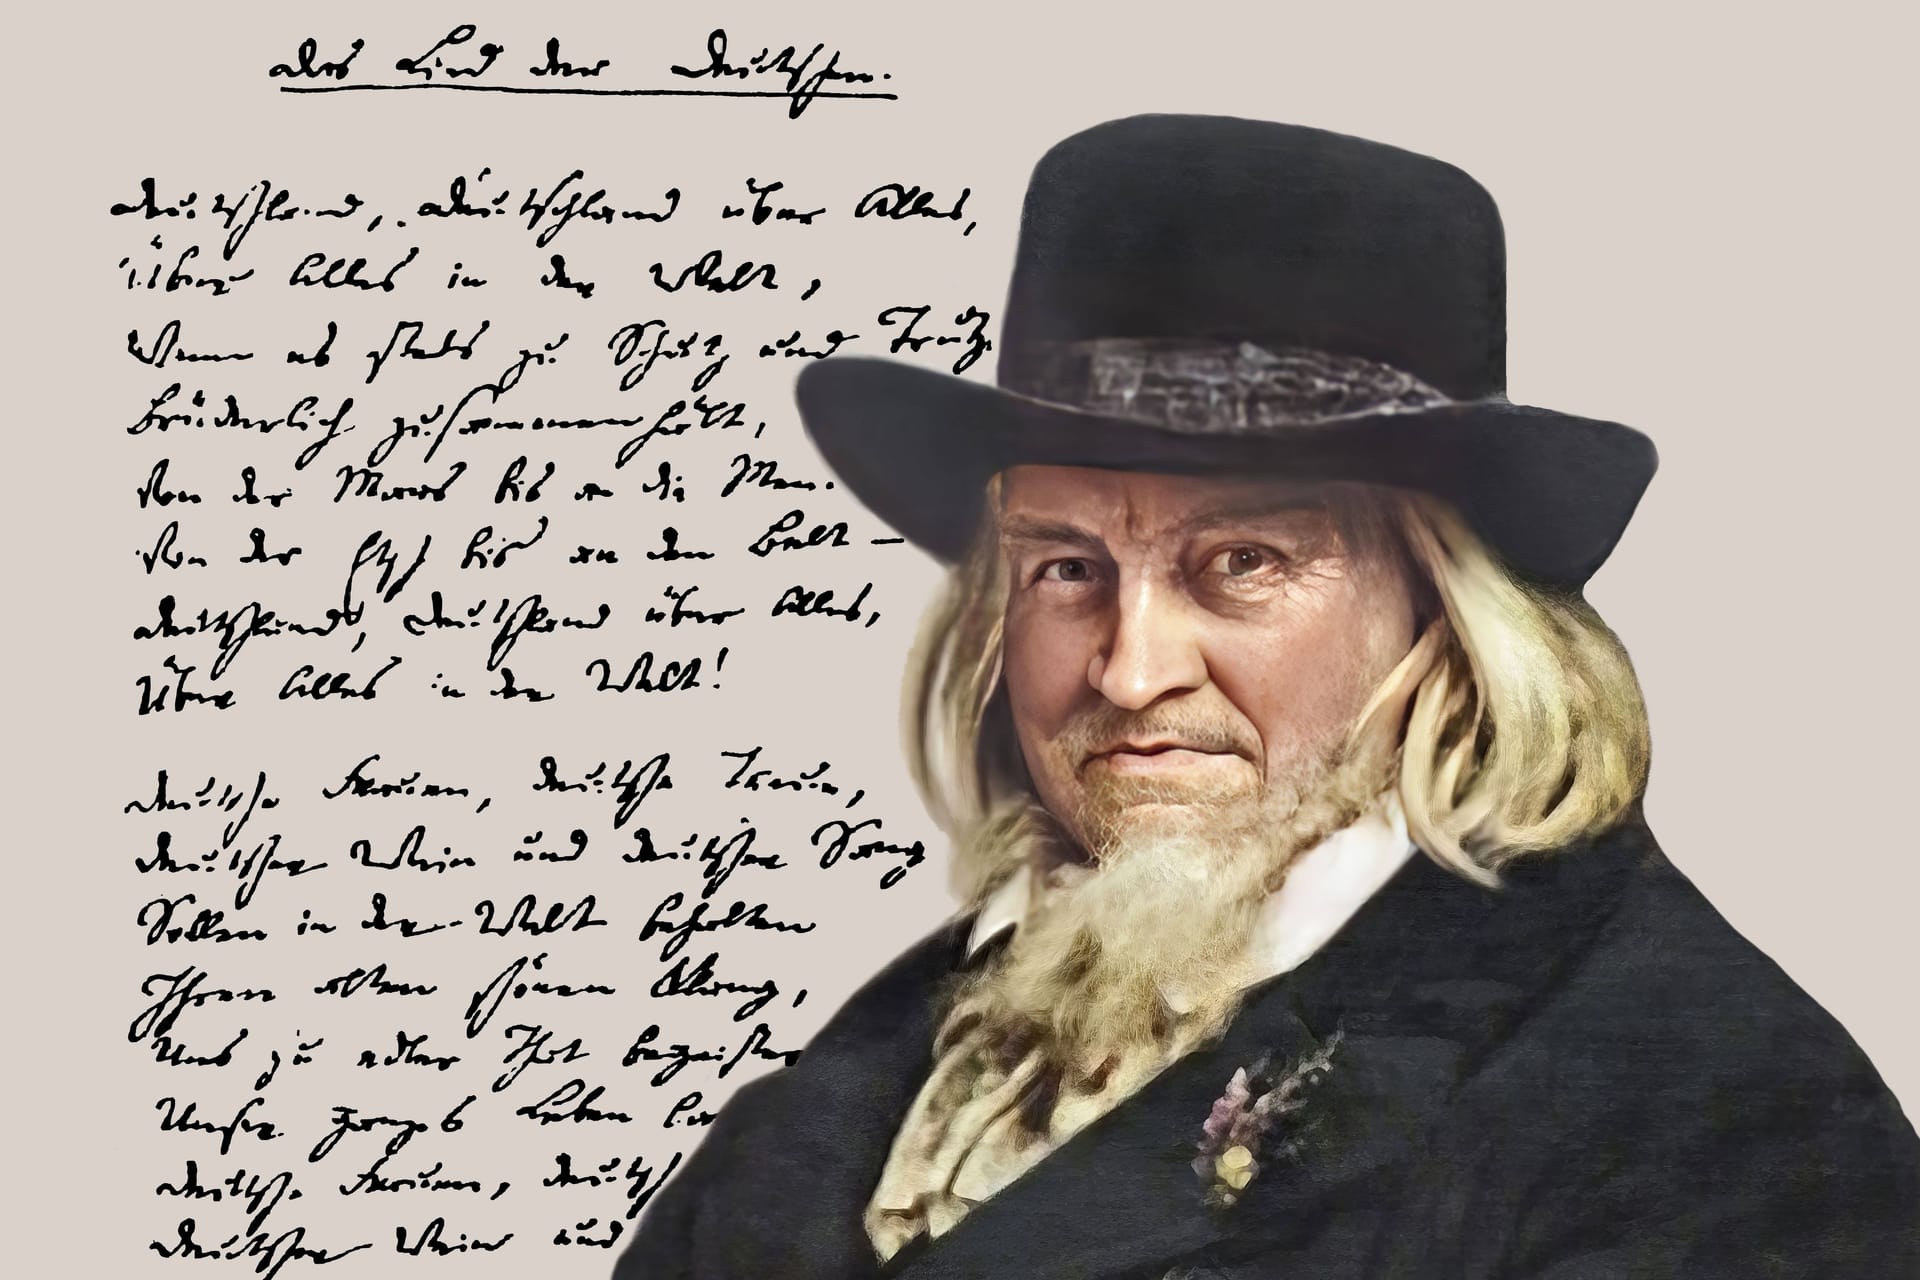 Das Lied der Deutschen.
Deutschland, Deutschland über Alles,
Über Alles in der Welt,
Wenn es stets zu Schutz und Trutze
Brüderlich zusammenhält,
Von der Maas bis an die Memel
Von der Etsch bis an den Belt –
Deutschland, Deutschland über Alles,
Über Alles in der Welt!
Deutsche Frauen, deutsche Treue,
Deutscher Wein und deutscher Sang
Sollen in der Welt behalten
Ihren alten schönen Klang,
Uns zu edler That begeistern
Unser ganzes Leben la
Deutsche Frauen, deutsch
Deutscher Wein und